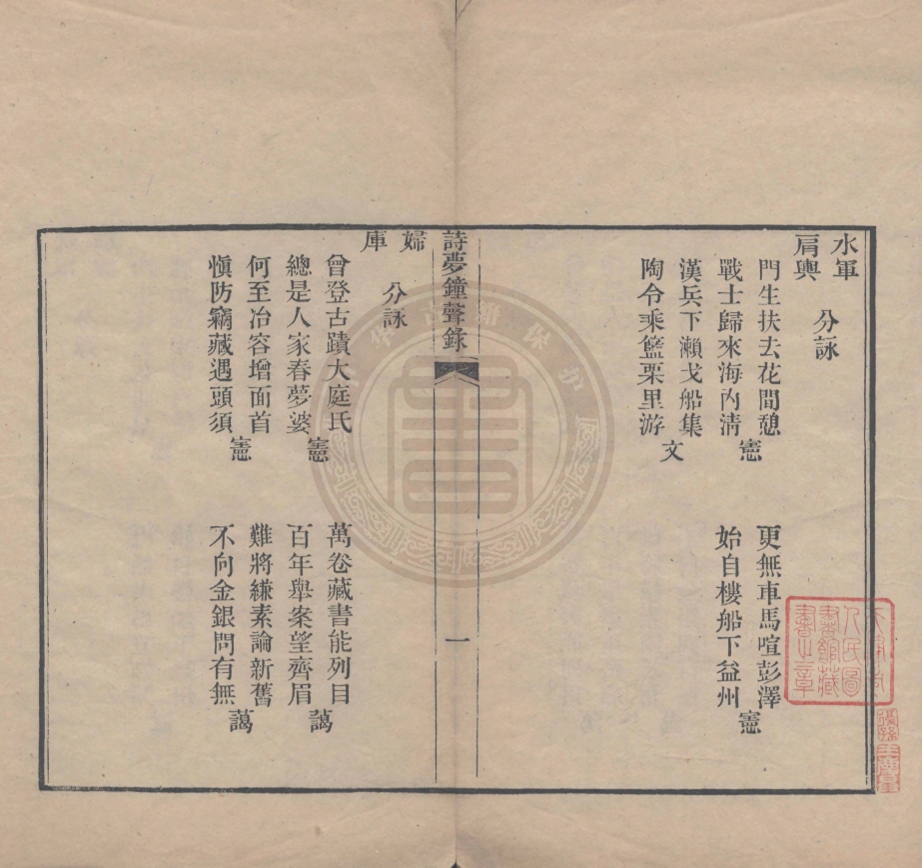 水軍
肩輿
分詠
門生扶去花間憩
更無車馬喧彭澤
戰士歸來海內清憲
始自樓船下益州憲
漢兵下瀨戈船集
陶令乘籃栗里游文
詩夢鐘聲錄
一
婦
庫
分詠
曾登古蹟大庭氏
萬卷藏書能列目
總是人家春夢婆憲
百年舉案望齊眉蔼
何至冶容增面首
難將縑素論新舊
慎防竊藏遇頭須憲
不向金銀問有無蔼
人民圖
書館藏
書之章